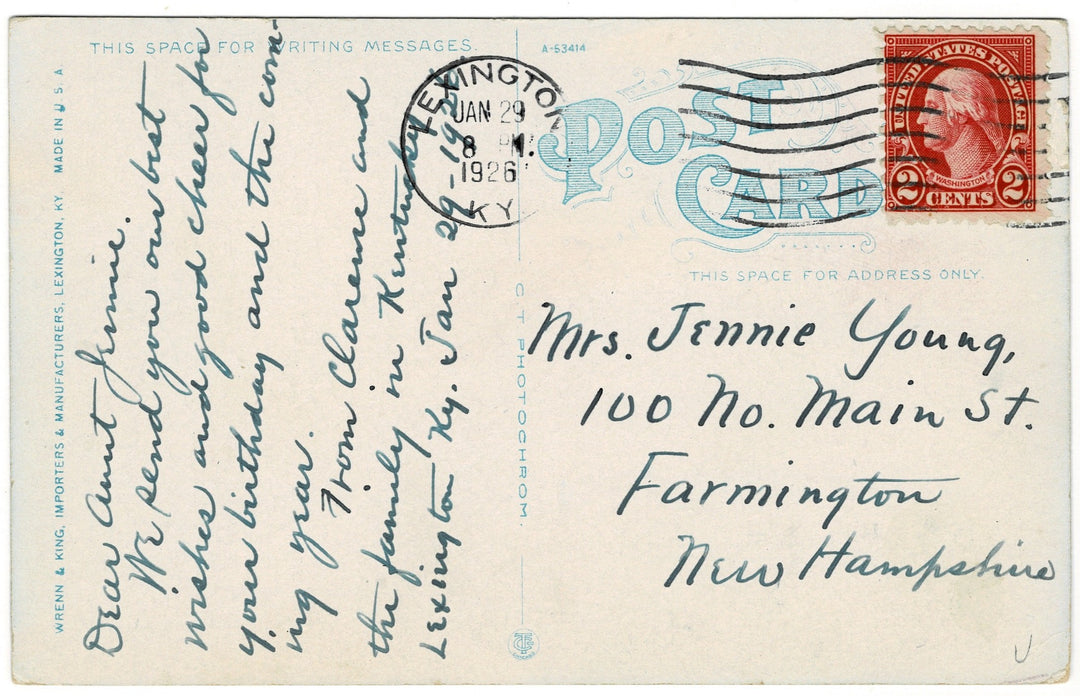 THIS SPACE FOR WRITING MESSAGES.
A-53414
WRENN & KING, IMPORTERS & MANUFACTURERS, LEXINGTON, KY. MADE IN U.S.A.
Dear Aunt Jennie.
We send you our best
wishes and good cheer for
your birthday and the com-
ing year.
From Clarence and
the family in Kentucky.
Lexington Ky. Jan 29-1926
C.T. PHOTOCHROM.
LEXINGTON
JAN 29
8 PM
1926
KY.
POST
CARD
UNITED STATES POSTAGE
WASHINGTON
2 CENTS 2
THIS SPACE FOR ADDRESS ONLY.
Mrs. Jennie Young,
100 No. Main St.
Farmington
New Hampshire